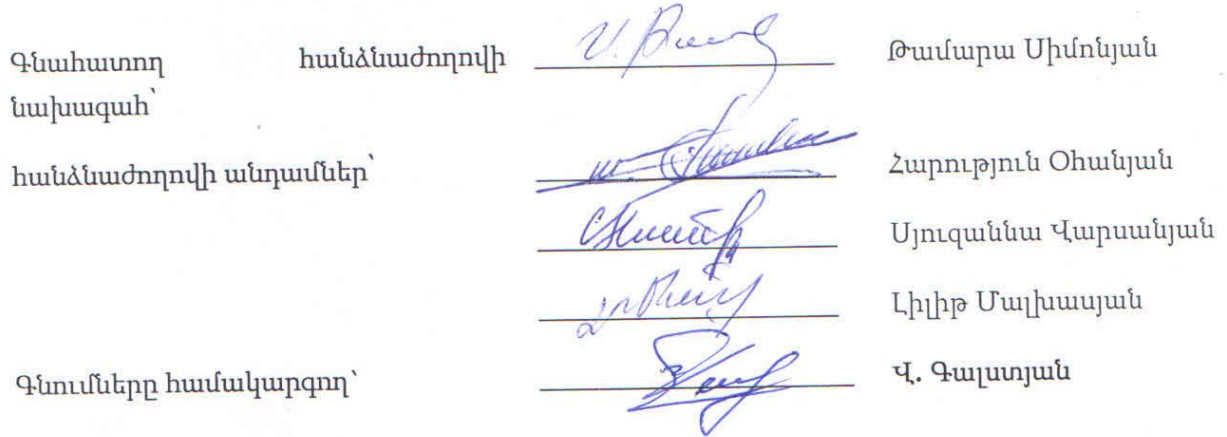 Գնահատող հանձնաժողովի Թամարա Սիմոնյան
նախագահ՝
հանձնաժողովի անդամներ՝ Հարություն Օհանյան
Սյուզաննա Վարսանյան
Լիլիթ Մալխասյան
Գնումները համակարգող՝ Վ. Գալստյան